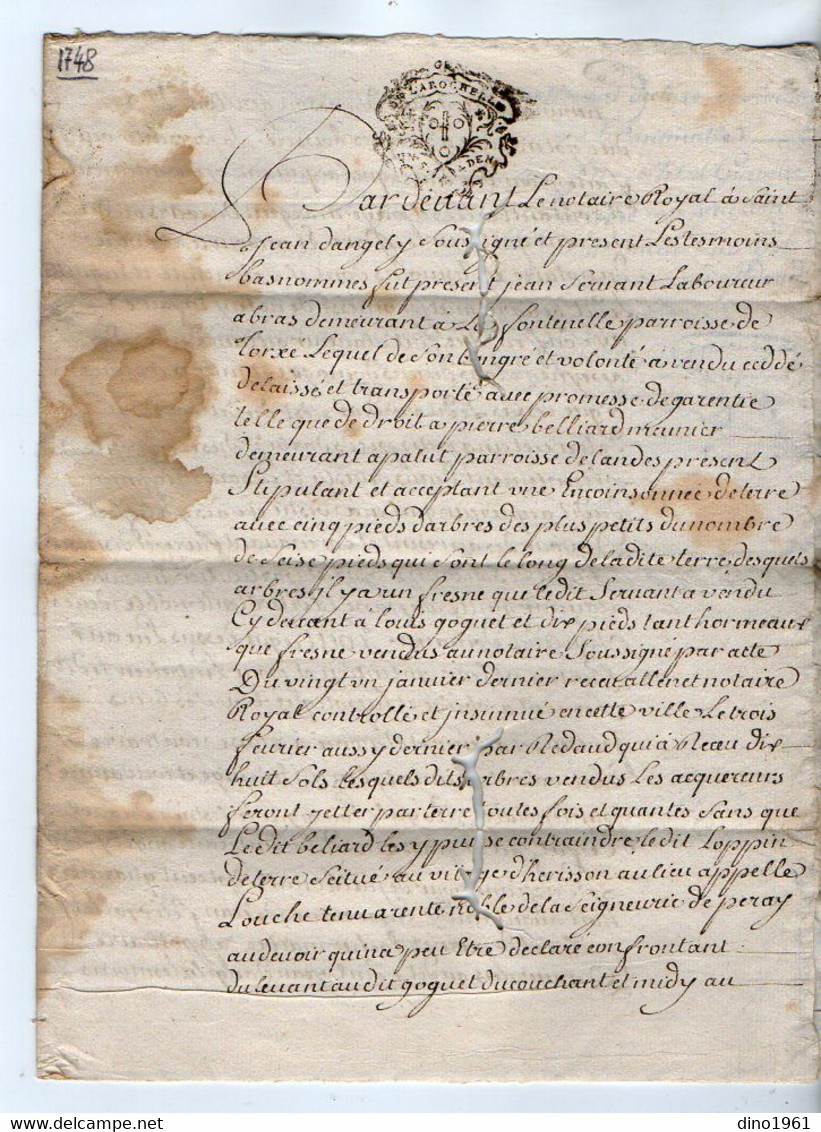 1748
DE LAROCHELLE
Pardevant Le notaire Royal à Saint
Jean dangely Soussigné et present Les tesmoins
bas nommes fut present jean Servant Laboureur
a bras demeurant à La fontenelle parroisse de
Torxé Lequel de Son bon gré et volonté à vendu ceddé
delaissé et transporté avec promesse de garentie
telle que de droit a pierre belliard meunier
demeurant a palut parroisse de landes present
Stipulant et acceptant une Encoinsonnée de terre
avec cinq pieds darbres des plus petits du nombre
de Seise pieds qui Sont le long de la dite terre, desquels
arbres il y a un fresne que ledit Servant a vendu
Cy devant à louis goguet et dix pieds tant hormeaux
que fresne vendus au notaire Soussigné par acte
Du vingt un janvier dernier recut allenet notaire
Royal controllé et jnsinnué en cette ville Le trois
fevrier aussy dernier par Redaud qui à Receu dix
huit Sols Lesquels dits arbres vendus Les acquereurs
feront jetter par terre toutes fois et quantes Sans que
Ledit beliard les y puisse contraindre, le dit Loppin
de terre Scitué au village d'herisson au lieu appellé
Louche tenu a rente noble de la Seigneurie de peray
au devoir qui n'a peu Etre declaré confrontant
du levant audit goguet du couchant et midy au
dino1961